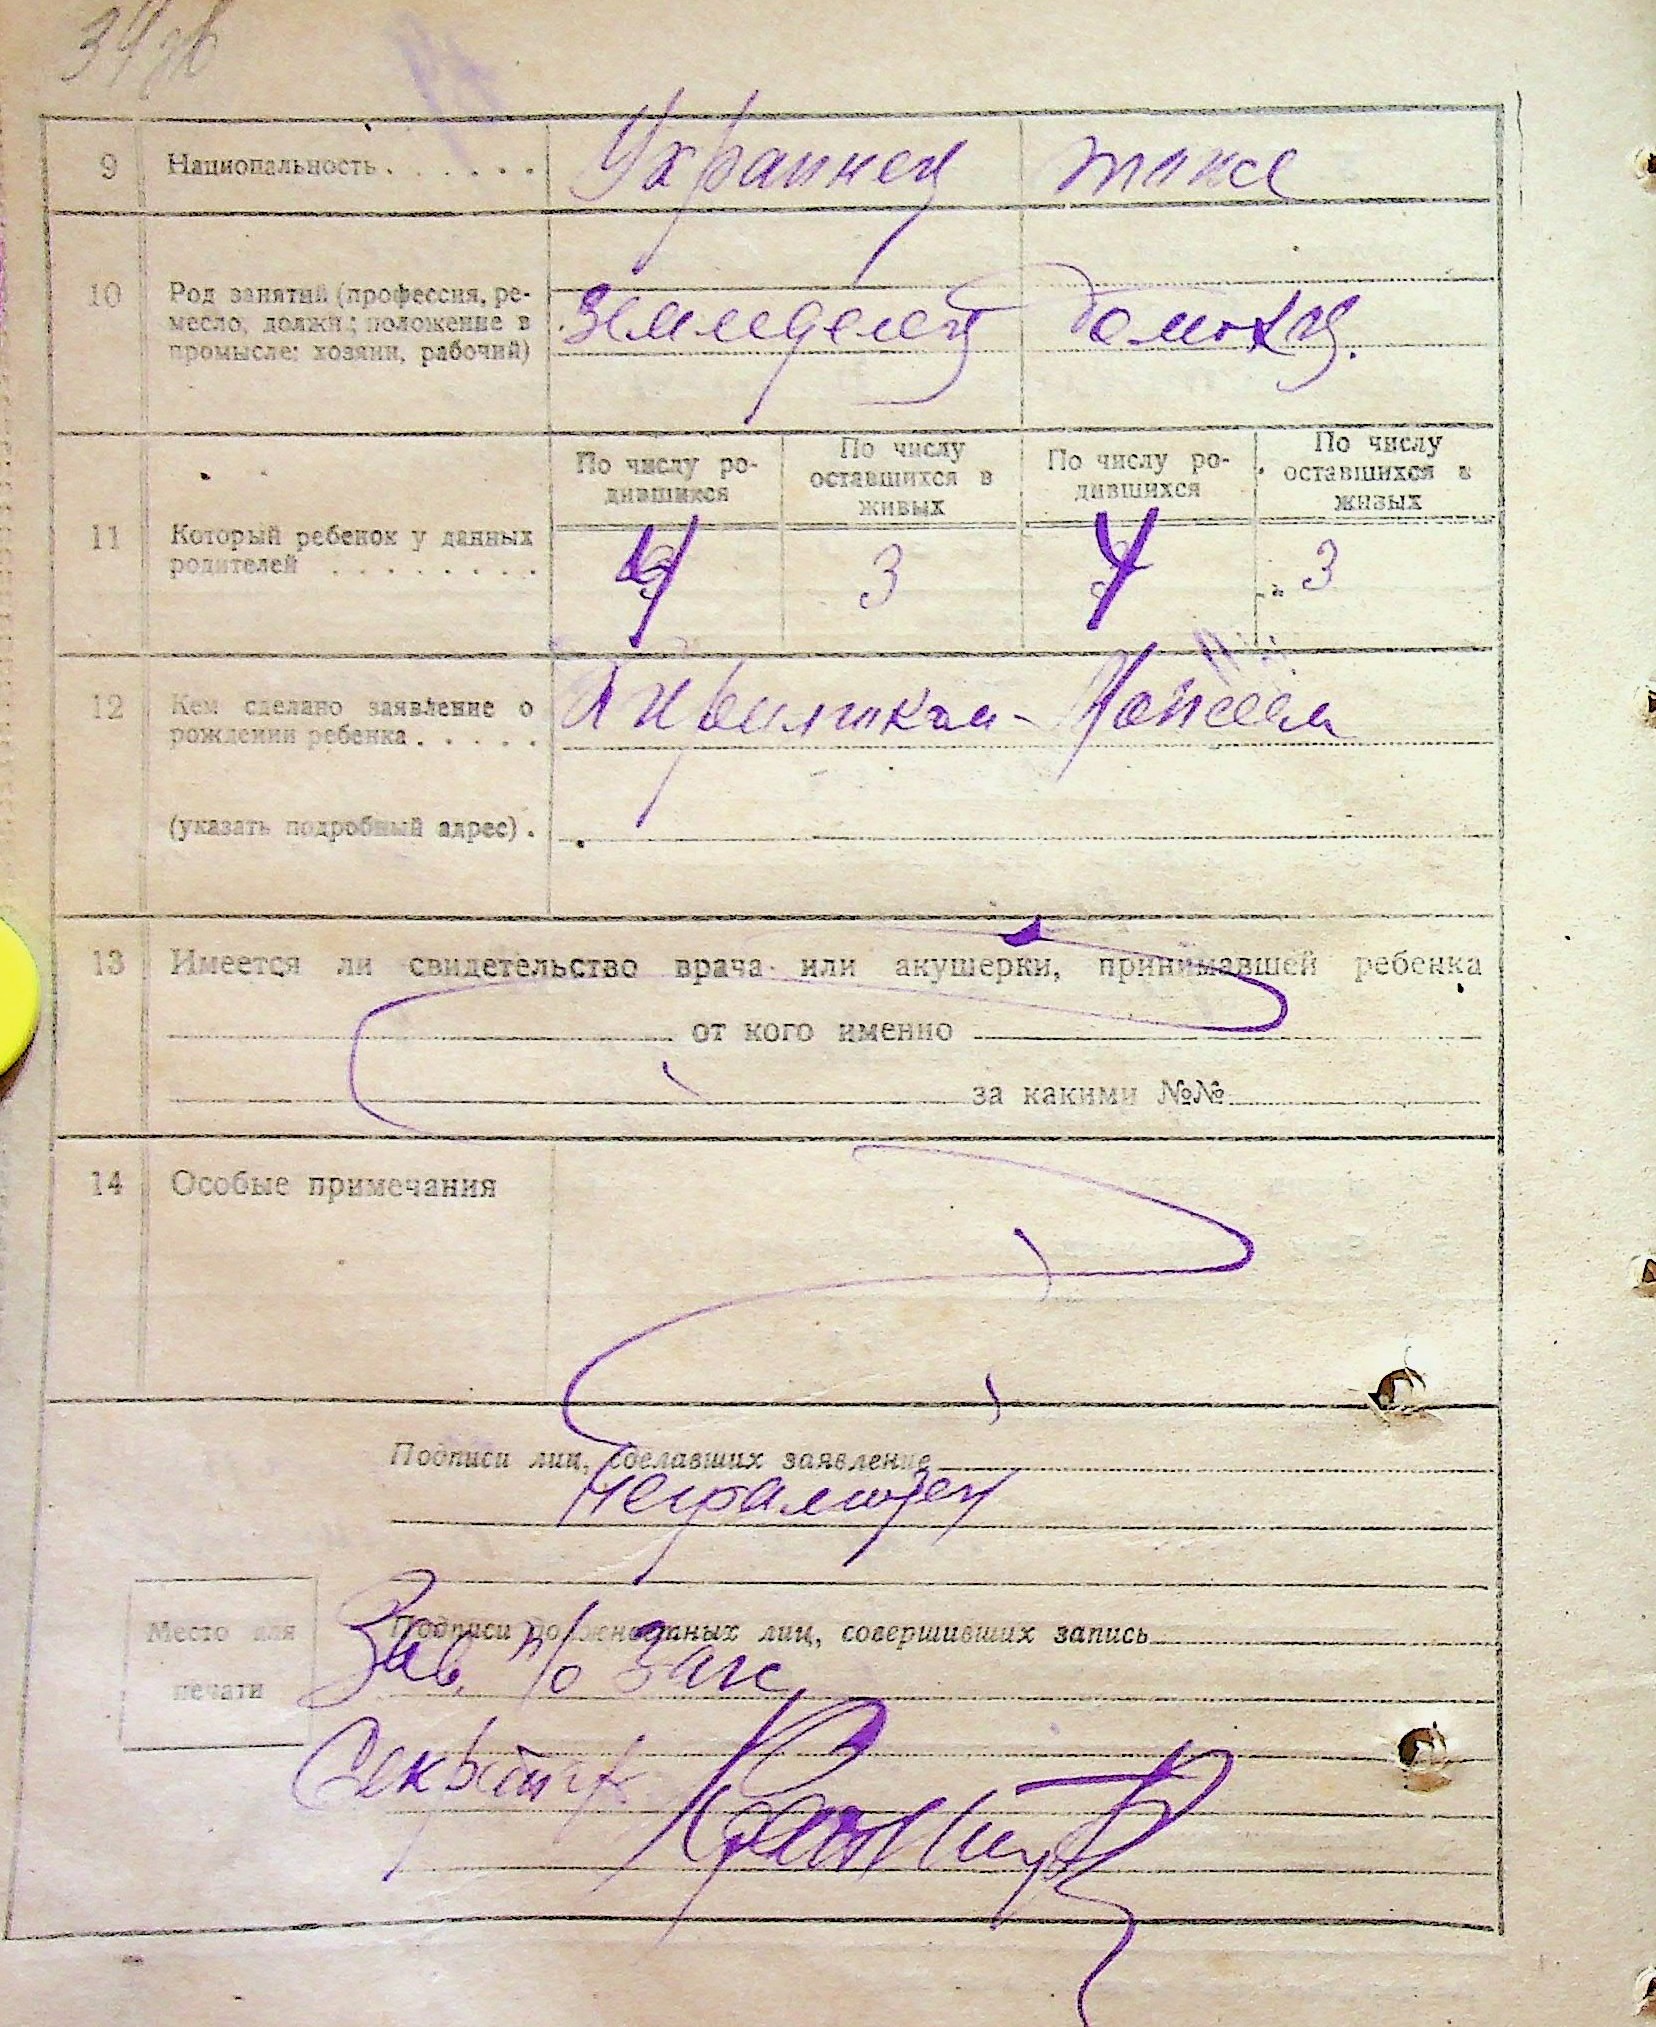 34 зв
9 Национальность . . . . . . Украинец також
10 Род занятий (профессия, ре-
месло, должн.; положение в
промысле: хозяин, рабочий)
земледелец домохоз.
По числу ро-
дившихся
По числу
оставшихся в
живых
По числу ро-
дившихся
По числу
оставшихся в
живых
11 Который ребенок у данных
родителей . . . . . . . .
4 3 4 3
12 Кем сделано заявление о
рождении ребенка . . . . .
(указать подробный адрес) .
13 Имеется ли свидетельство врача или акушерки, принимавшей ребенка
от кого именно
за какими №№
14 Особые примечания
Подписи лиц, сделавших заявление
Неграмотен
Подписи должностных лиц, совершивших запись
Зав. п/о Загс
Место для
печати
Секретарь